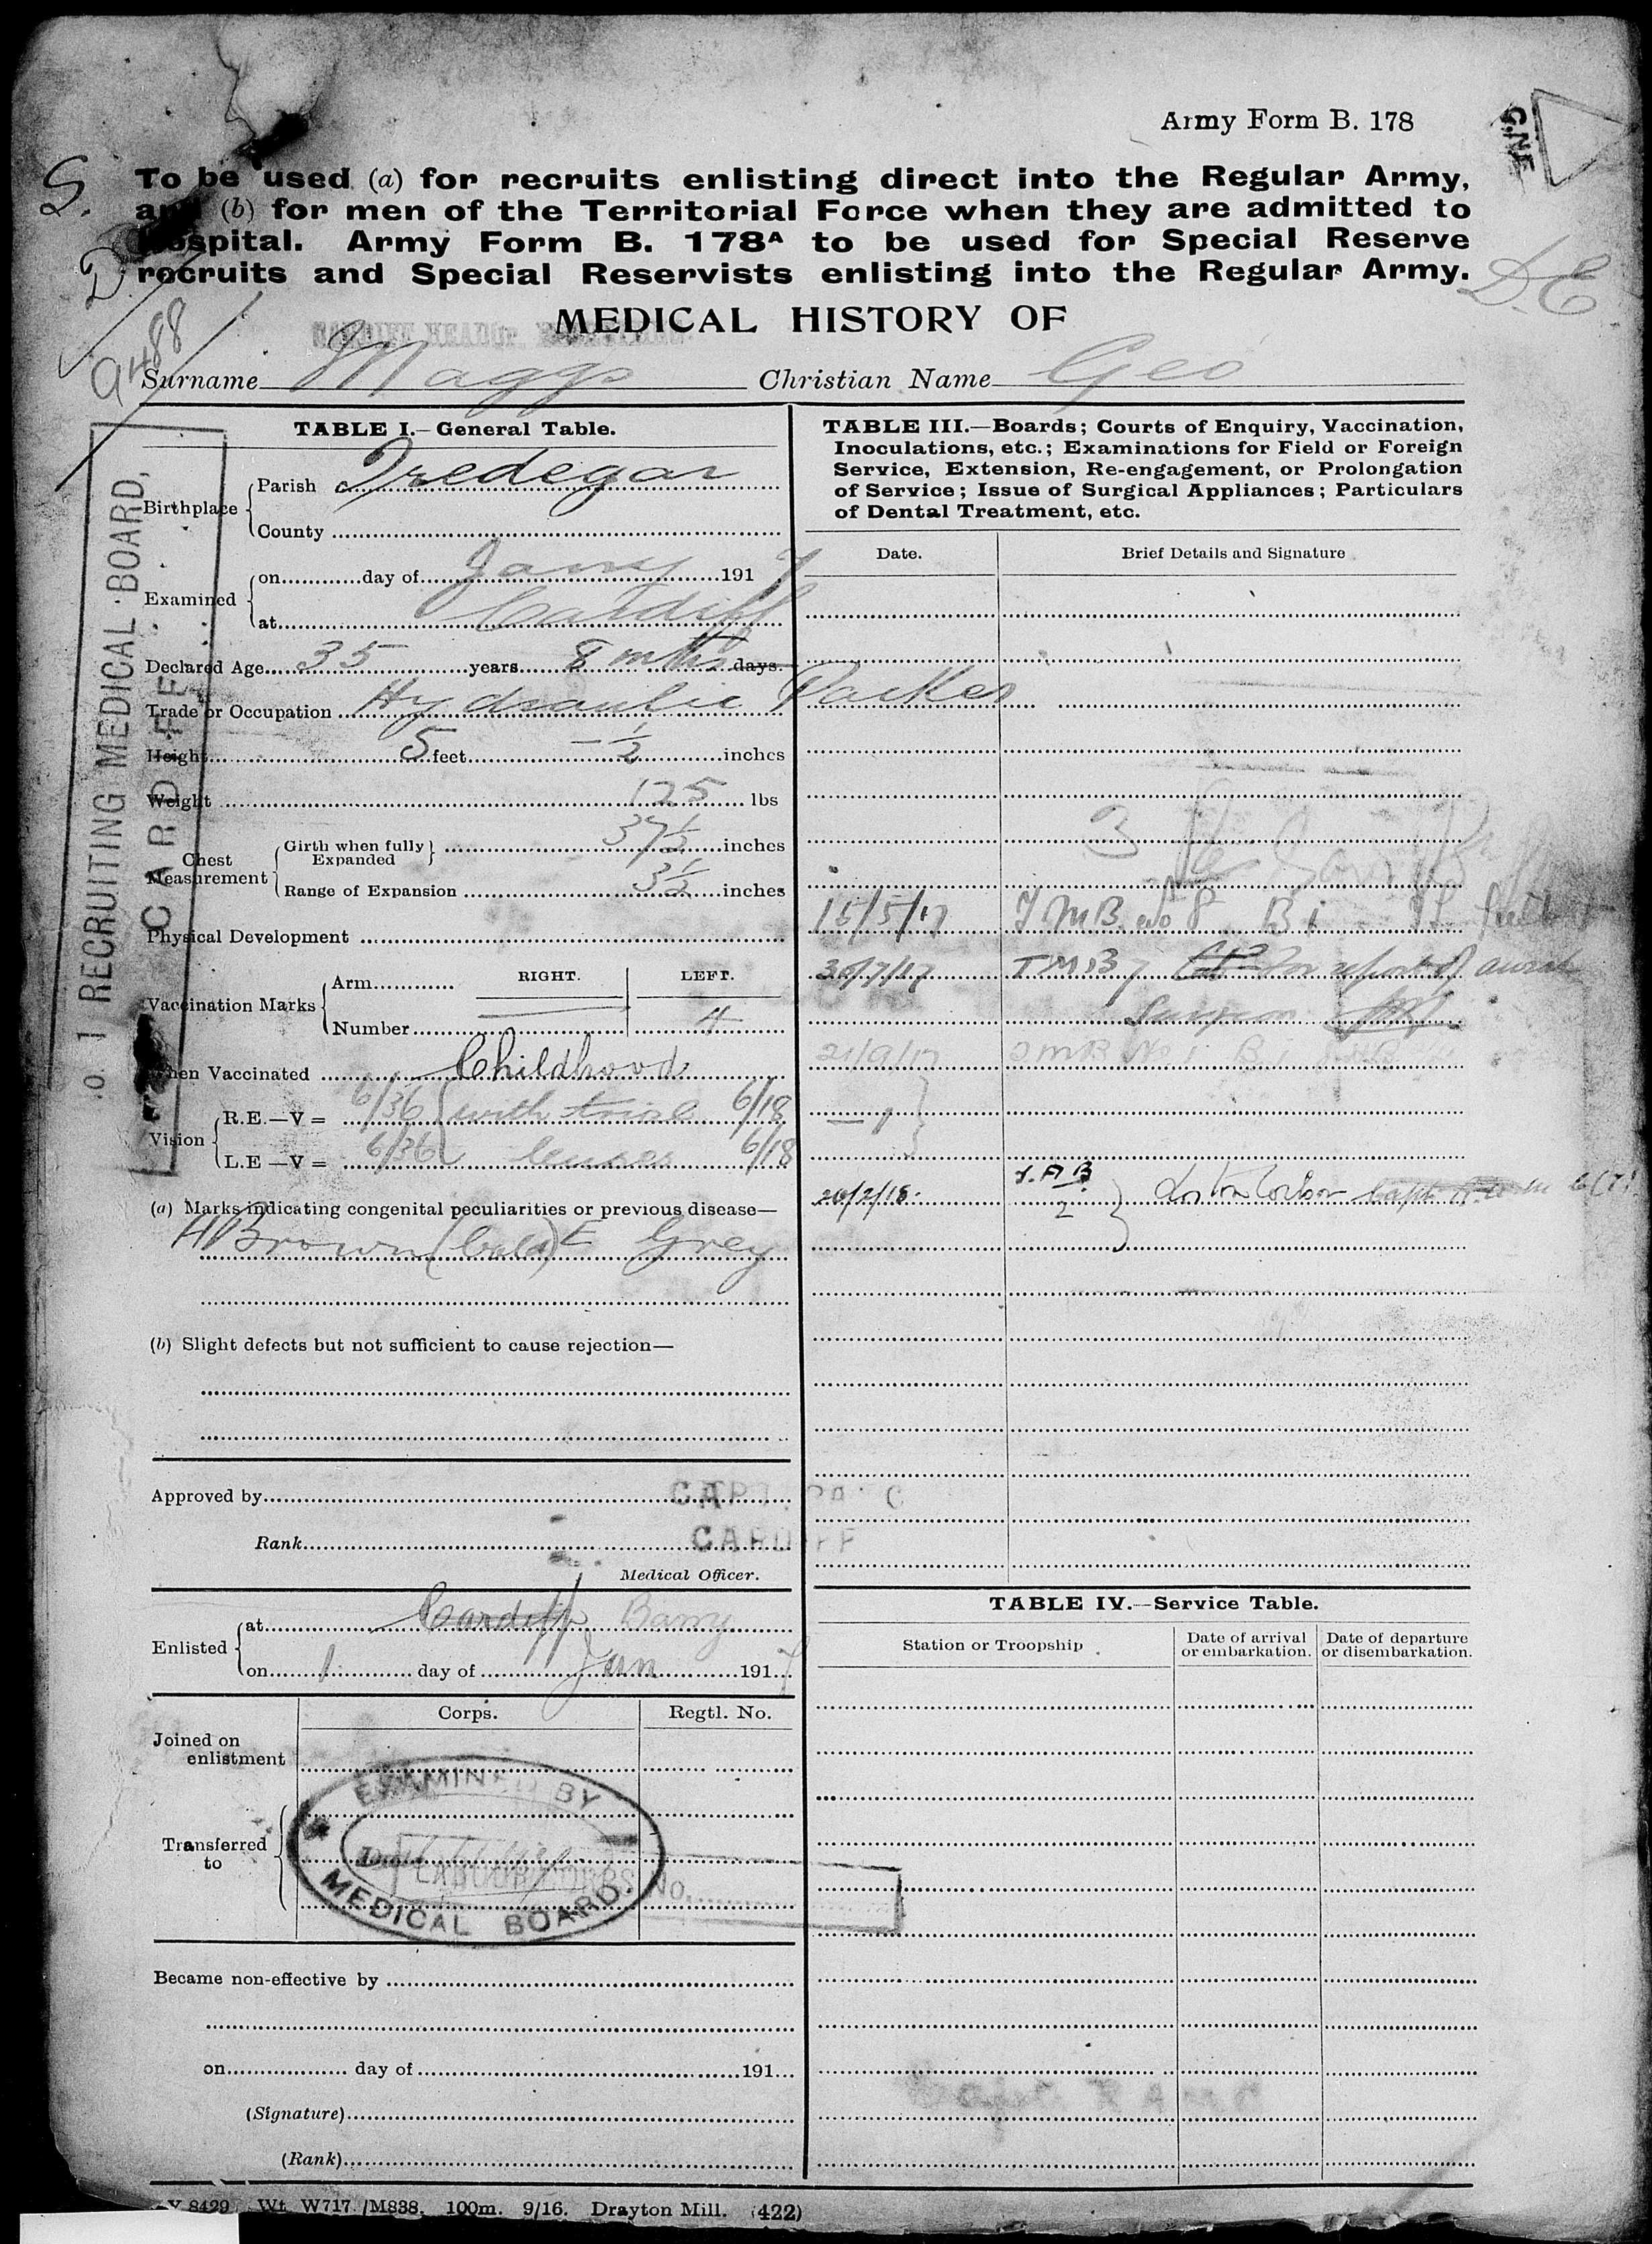 Army Form B. 178
GNE
S.
D.
D.E
9488
To be used (a) for recruits enlisting direct into the Regular Army,
and (b) for men of the Territorial Force when they are admitted to
Hospital. Army Form B. 178A to be used for Special Reserve
recruits and Special Reservists enlisting into the Regular Army.
MEDICAL HISTORY OF
Surname Maggs Christian Name Geo
No. 1 RECRUITING MEDICAL BOARD,
CARDIFF
TABLE I.—General Table.
Birthplace
Parish Tredegar
County
Examined
on day of Jany 1917
at Cardiff
Declared Age 35 years 8 mths days.
Trade or Occupation Hydraulic Packer
Height 5 feet – ½ inches
Weight 125 lbs
Chest Measurement
Girth when fully Expanded 37½ inches
Range of Expansion 3½ inches
Physical Development
Vaccination Marks
Arm RIGHT. LEFT.
Number 4
When Vaccinated Childhood
Vision
R.E.—V = 6/36 with trial 6/18
L.E—V = 6/36 lenses 6/18
(a) Marks indicating congenital peculiarities or previous disease—
H Brown (bald) E Grey
(b) Slight defects but not sufficient to cause rejection—
Approved by
CAPT.
Rank
CARDIFF
Medical Officer.
Enlisted
at Cardiff Barry
on 1 day of Jan 1917
Corps. Regtl. No.
Joined on
enlistment
Transferred
to
EXAMINED BY
MEDICAL BOARD.
LABOUR CORPS No.
Became non-effective by
on day of 191
(Signature)
(Rank)
TABLE III.—Boards; Courts of Enquiry, Vaccination,
Inoculations, etc.; Examinations for Field or Foreign
Service, Extension, Re-engagement, or Prolongation
of Service; Issue of Surgical Appliances; Particulars
of Dental Treatment, etc.
Date. Brief Details and Signature
15/5/17 T.M.B. No 8 B i
30/7/17 TMB 7 for report of aural
Surgeon
21/9/17 TMB No 1 B i
20/2/18.
2
TABLE IV.—Service Table.
Station or Troopship
Date of arrival
or embarkation.
Date of departure
or disembarkation.
Y 8429 Wt. W717/M838. 100m. 9/16. Drayton Mill. (422)